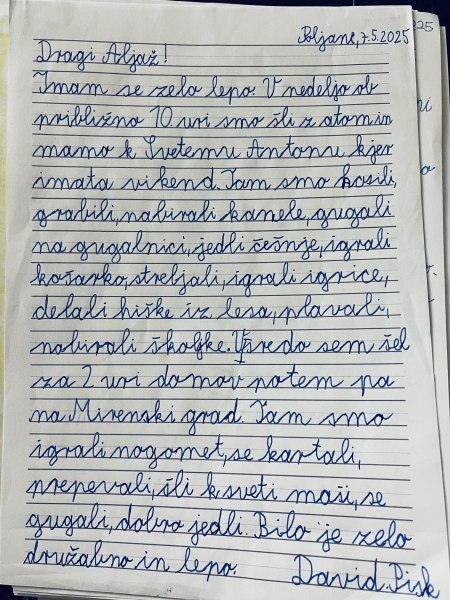 Poljane, 7.5.2025
Dragi Aljaž!
Imam se zelo lepo. V nedeljo ob
približno 10 uri smo šli z atom in
mamo k Svetemu Antonu, kjer
imata vikend. Tam smo kosili,
grabili, nabirali kamele, gugali
na gugalnici, jedli češnje, igrali
košarko, streljali, igrali igrice,
delali hiške iz lesa, plavali,
nabirali školjke. V sredo sem šel
za 2 uri domov potem pa
na Mirenski grad. Tam smo
igrali nogomet, se kartali,
prepevali, šli k sveti maši, se
gugali, dobro jedli. Bilo je zelo
družabno in lepo.
David Pisk